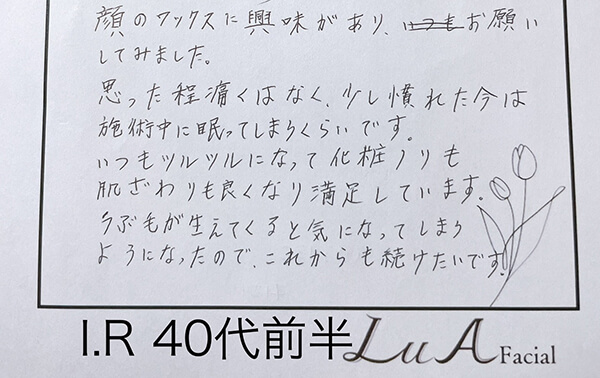 顔のワックスに興味があり、いつもお願い
してみました。
思った程痛くはなく、少し慣れた今は
施術中に眠ってしまうくらいです。
いつもツルツルになって化粧ノリも
肌ざわりも良くなり満足しています。
うぶ毛が生えてくると気になってしまう
ようになったので、これからも続けたいです。
I.R 40代前半
LuA Facial